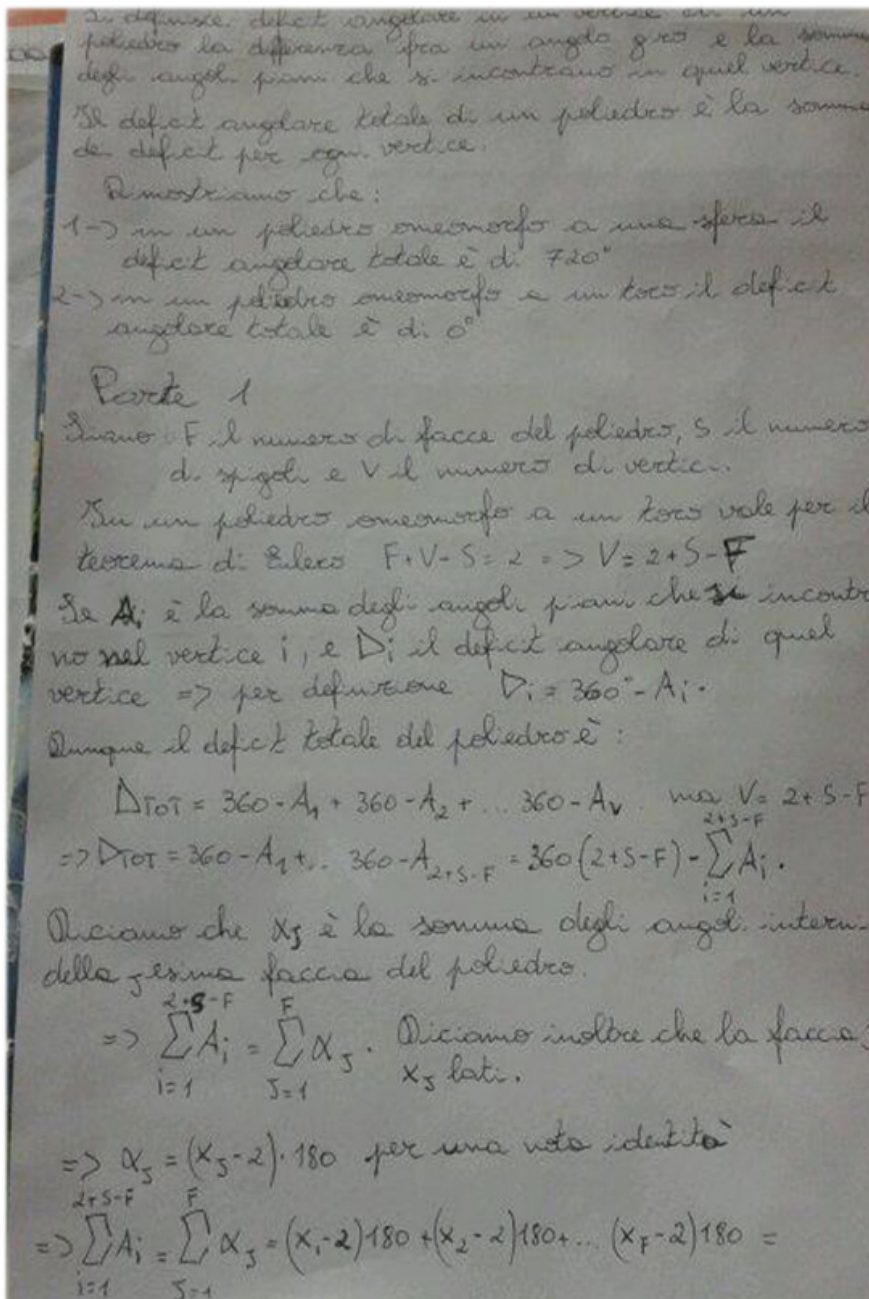 Si definisce deficit angolare in un vertice di un
poliedro la differenza fra un angolo giro e la somma
degli angoli piani che si incontrano in quel vertice.
Il deficit angolare totale di un poliedro è la somma
dei deficit per ogni vertice.
Dimostriamo che:
1-> in un poliedro omeomorfo a una sfera il
deficit angolare totale è di 720°
2-> in un poliedro omeomorfo a un toro il deficit
angolare totale è di 0°
Parte 1
Siano F il numero di facce del poliedro, S il numero
di spigoli e V il numero di vertici.
In un poliedro omeomorfo a un toro vale per il
teorema di Eulero F+V-S=2 => V=2+S-F
Se Ai è la somma degli angoli piani che si incontra
no nel vertice i, e Di il deficit angolare di quel
vertice => per definizione Di = 360° - Ai.
Dunque il deficit totale del poliedro è:
DTOT = 360 - A1 + 360 - A2 + ... 360 - AV ma V = 2+S-F
=> DTOT = 360 - A1 + ... 360 - A2+S-F = 360(2+S-F) - ∑_{i=1}^{2+S-F} Ai.
Diciamo che αJ è la somma degli angoli interni
della Jesima faccia del poliedro.
=> ∑_{i=1}^{2+S-F} Ai = ∑_{J=1}^{F} αJ. Diciamo inoltre che la faccia J
xJ lati.
=> αJ = (xJ-2)·180 per una nota identità
=> ∑_{i=1}^{2+S-F} Ai = ∑_{J=1}^{F} αJ = (x1-2)180 + (x2-2)180 + ... (xF-2)180 =